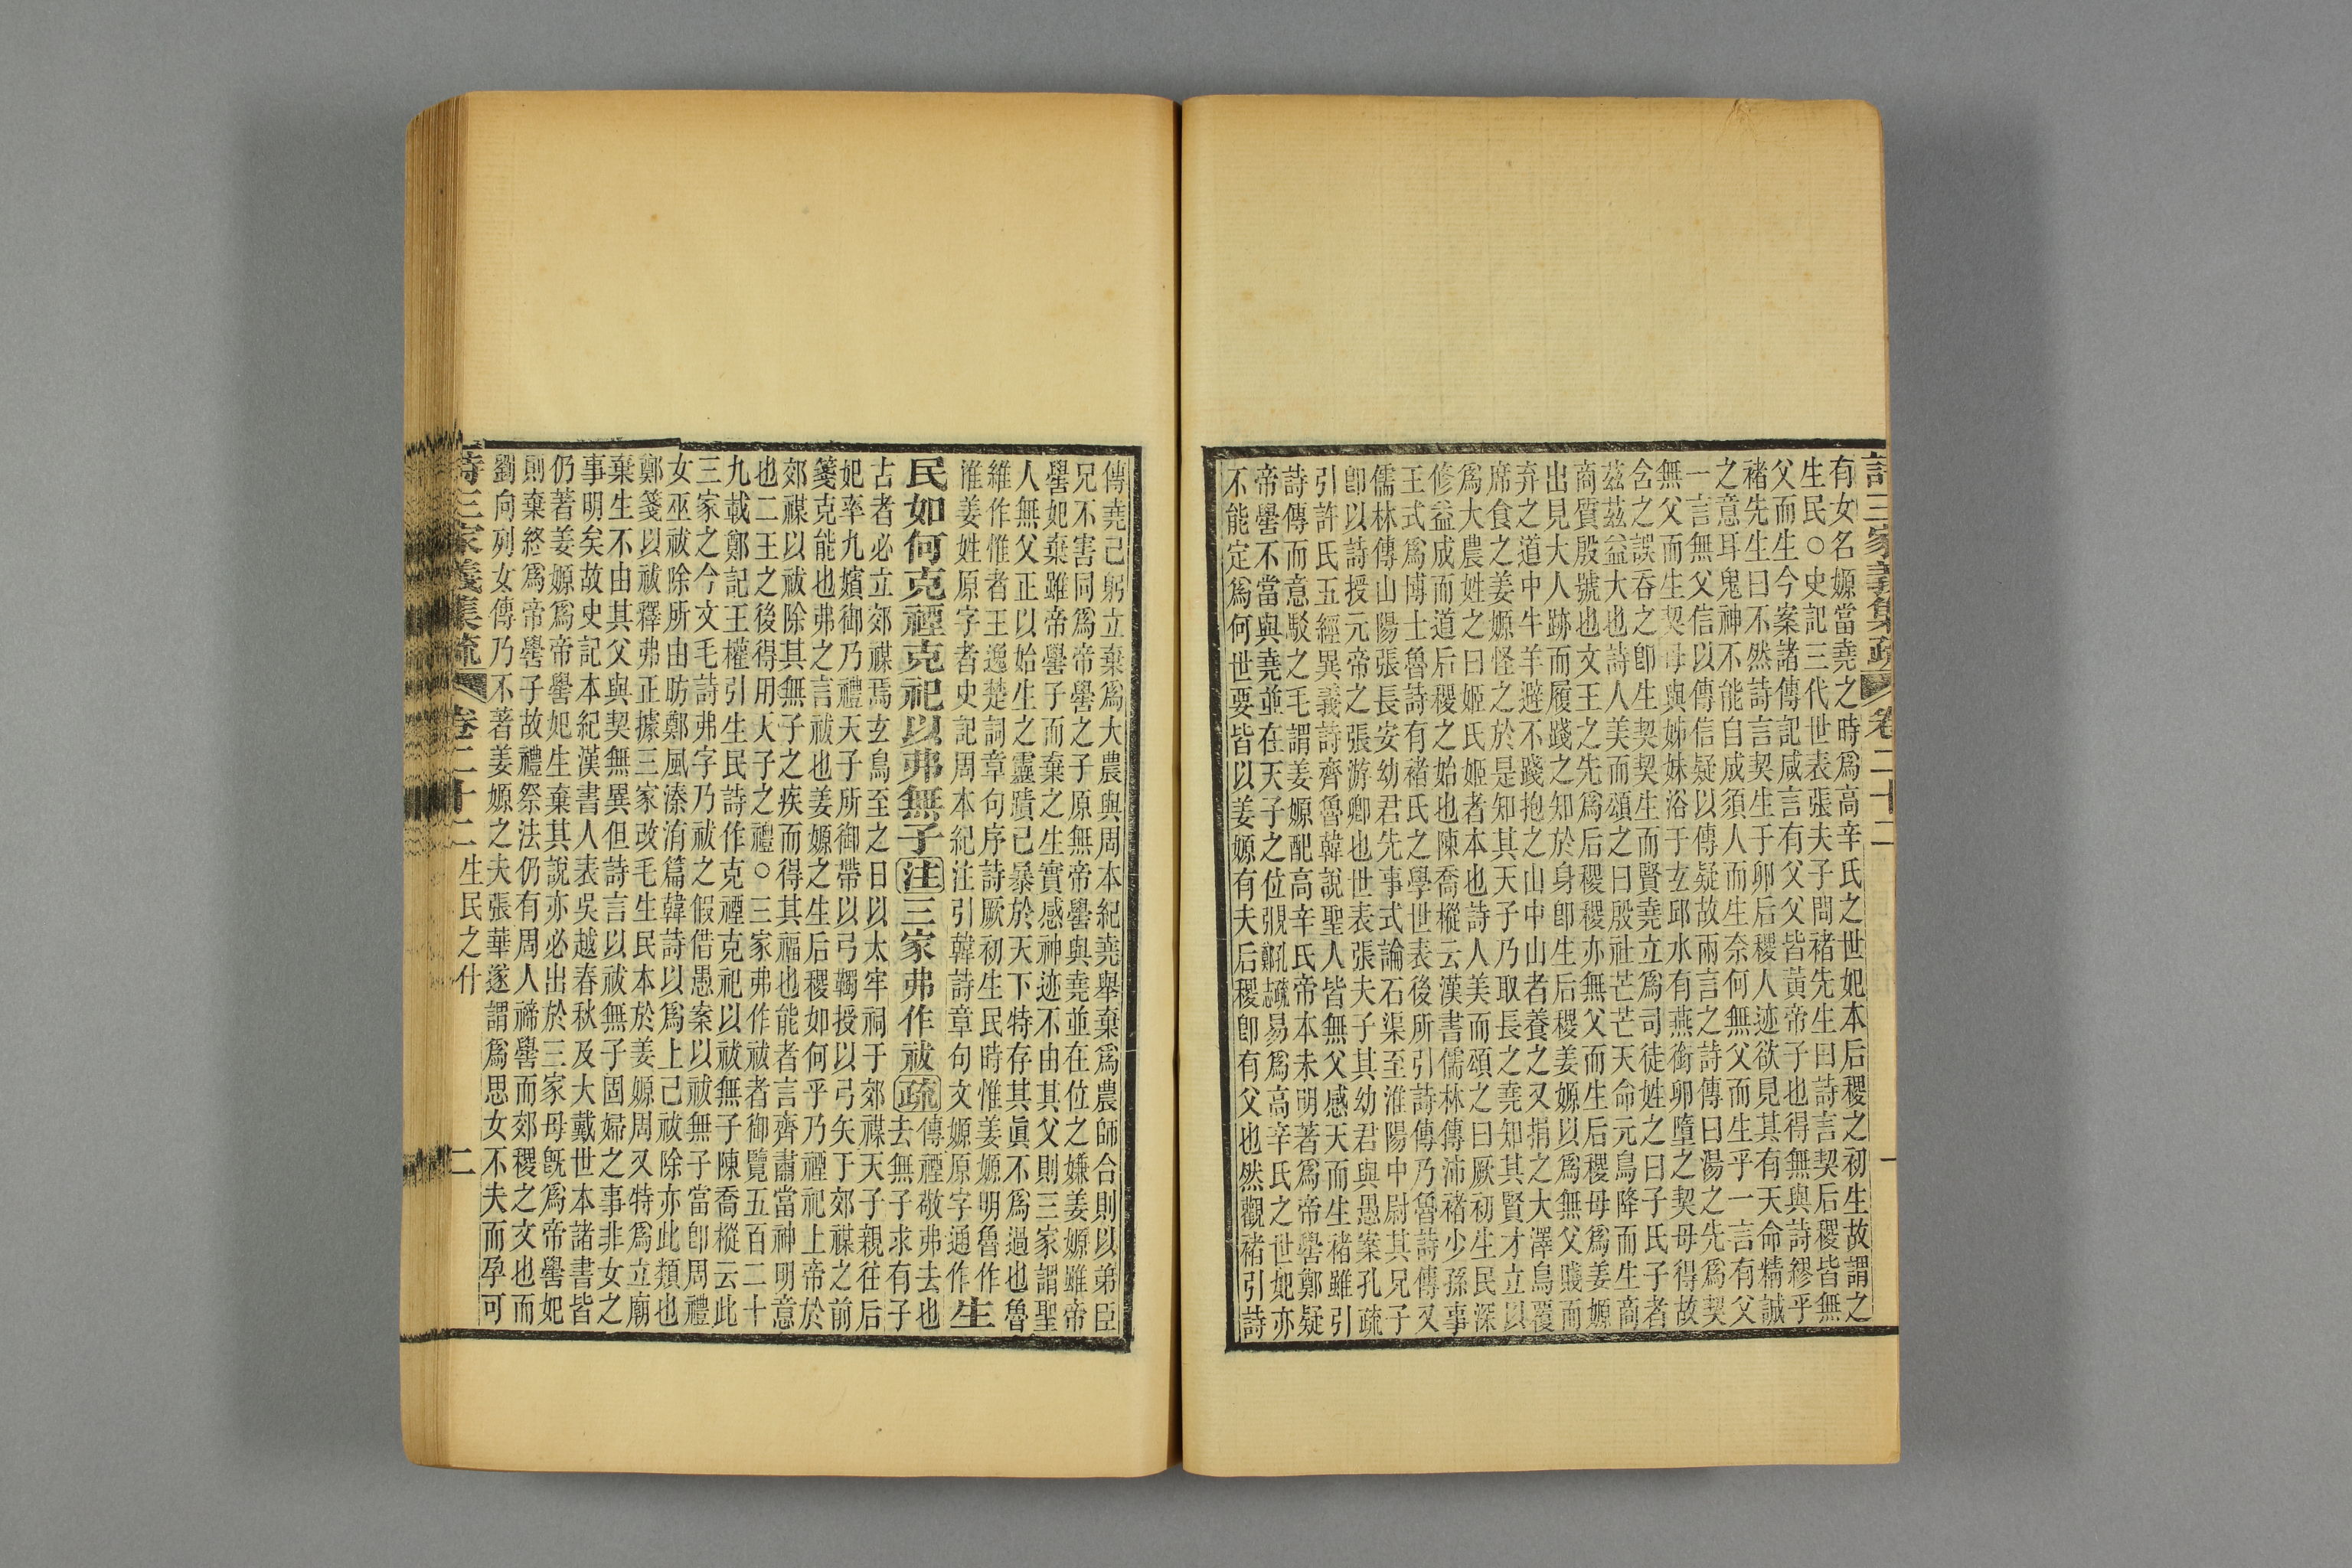 有女名嫄當堯之時爲高辛氏之世妃本后稷之初生故謂之
生民○史記三代世表張夫子問褚先生曰詩言契后稷皆無
父而生今案諸傳記咸言有父父皆黃帝子也得無與詩繆乎
褚先生曰不然詩言契生于卵后稷人迹欲見其有天命精誠
之意耳鬼神不能自成須人而生奈何無父而生乎一言有父
一言無父信以傳信疑以傳疑故兩言之詩傳曰湯之先爲契
無父而生契母與姊妹浴于玄邱水有燕銜卵墮之契母得故
含之誤吞之卽生契契生而賢堯立爲司徒姓之曰子氏子者
茲茲益大也詩人美而頌之曰殷社芒芒天命元鳥降而生商
商質殷號也文王之先爲后稷稷亦無父而生后稷母爲姜嫄
出見大人跡而履踐之知於身卽生后稷姜嫄以爲無父賤而
弃之道中牛羊避不踐抱之山中山者養之又捐之大澤鳥覆
席食之姜嫄怪之於是知其天子乃取長之堯知其賢才立以
爲大農姓之曰姬氏姬者本也詩人美而頌之曰厥初生民深
修益成而道后稷之始也陳喬樅云漢書儒林傳沛褚少孫事
王式爲博士魯詩有褚氏之學世表後所引詩傳乃魯詩傳又
儒林傳山陽張長安幼君先事式論石渠至淮陽中尉其兄子
卽以詩授元帝之張游卿也世表張夫子其幼君與愚案孔疏
引許氏五經異義詩齊魯韓說聖人皆無父感天而生褚雖引
詩傳而意駁之毛謂姜嫄配高辛氏帝本未明著爲帝嚳鄭疑
帝嚳不當與堯並在天子之位覬孔疏鄭志易爲高辛氏之世妃亦
不能定爲何世要皆以姜嫄有夫后稷卽有父也然觀褚引詩
詩三家義集疏 卷二十二 一
傳堯已躬立棄爲大農與周本紀堯舉棄爲農師合則以弟臣
兄不害同爲帝嚳之子原無帝嚳與堯並在位之嫌姜嫄雖帝
嚳妃棄雖帝嚳子而棄之生實感神迹不由其父則三家謂聖
人無父正以始生之靈蹟已暴於天下特存其眞不爲過也魯
維作惟者王逸楚詞章句序詩厥初生民時惟姜嫄明魯作
淮姜姓原字者史記周本紀注引韓詩章句文嫄原字通作生
民如何克禋克祀以弗無子注三家弗作祓疏傳禋敬弗去也
去無子求有子
古者必立郊禖焉玄鳥至之日以太牢祠于郊禖天子親往后
妃率九嬪御乃禮天子所御帶以弓韣授以弓矢于郊禖之前
箋克能也弗之言祓也姜嫄之生后稷如何乎乃禋祀上帝於
郊禖以祓除其無子之疾而得其福也能者言齊肅當神明意
也二王之後得用天子之禮○三家弗作祓者御覽五百二十
九載鄭記王權引生民詩作克禋克祀以祓無子陳喬樅云此
三家之今文毛詩弗字乃祓之假借愚案以祓無子當卽周禮
女巫祓除所由昉鄭風溱洧篇韓詩以爲上巳祓除亦此類也
鄭箋以祓釋弗正據三家改毛生民本於姜嫄周又特爲立廟
棄生不由其父與契無異但詩言以祓無子固婦之事非女之
事明矣故史記本紀漢書人表吳越春秋及大戴世本諸書皆
仍著姜嫄爲帝嚳妃生棄其說亦必出於三家母旣爲帝嚳妃
則棄終爲帝嚳子故禮祭法仍有周人禘嚳而郊稷之文也而
劉向列女傳乃不著姜嫄之夫張華遂謂爲思女不夫而孕可
詩三家義集疏 卷二十二 生民之什 二